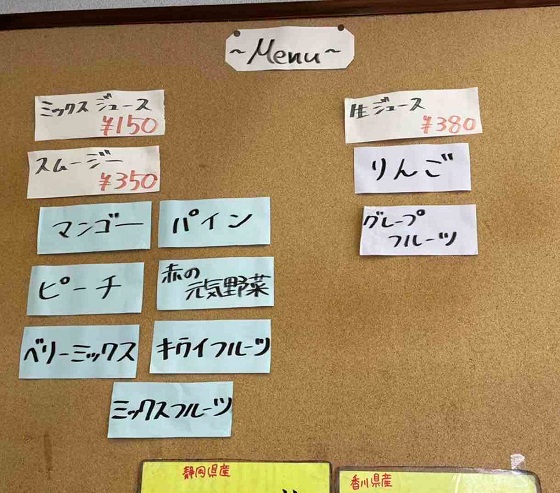 ~Menu~
ミックスジュース
¥150
スムージー
¥350
マンゴー
パイン
ピーチ
赤の
元気野菜
ベリーミックス
キウイフルーツ
ミックスフルーツ
生ジュース
¥380
りんご
グレープ
フルーツ
静岡県産
香川県産